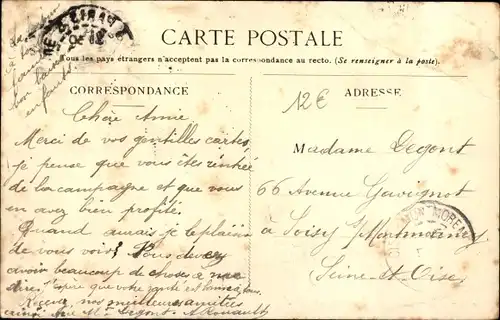 CARTE POSTALE
Tous les pays étrangers n'acceptent pas la correspondance au recto. (Se renseigner à la poste).
CORRESPONDANCE
ADRESSE
12€
Chère Amie
Merci de vos gentilles cartes,
je pense que vous êtes rentrée
de la campagne et que vous
en avez bien profité.
Quand aurais je le plaisir
de vous voir? Vous devez
avoir beaucoup de choses à me
dire. J'espère que votre santé est bonne
Recevez nos meilleures amitiés
ainsi que Mr Degont. A Rouault
Madame Degont
66 Avenue Gavignot
à Soisy s/ Montmorency
Seine-et-Oise